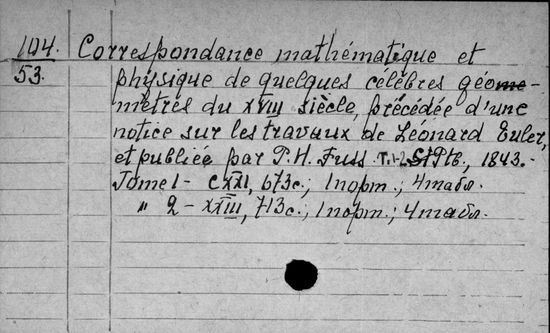 104.
53.
Correspondance mathématique et
physique de quelques célèbres géome-
mètres du XVIII siècle, précédée d'une
notice sur les travaux de Léonard Euler,
et publiée par P.H. Fuss. T.1-2 St Ptb., 1843.-
Tome 1 - CXXI, 673c.; 1 порт.; 4 табл.
" 2 - XXIII, 713c.; 1 порт.; 4 табл.